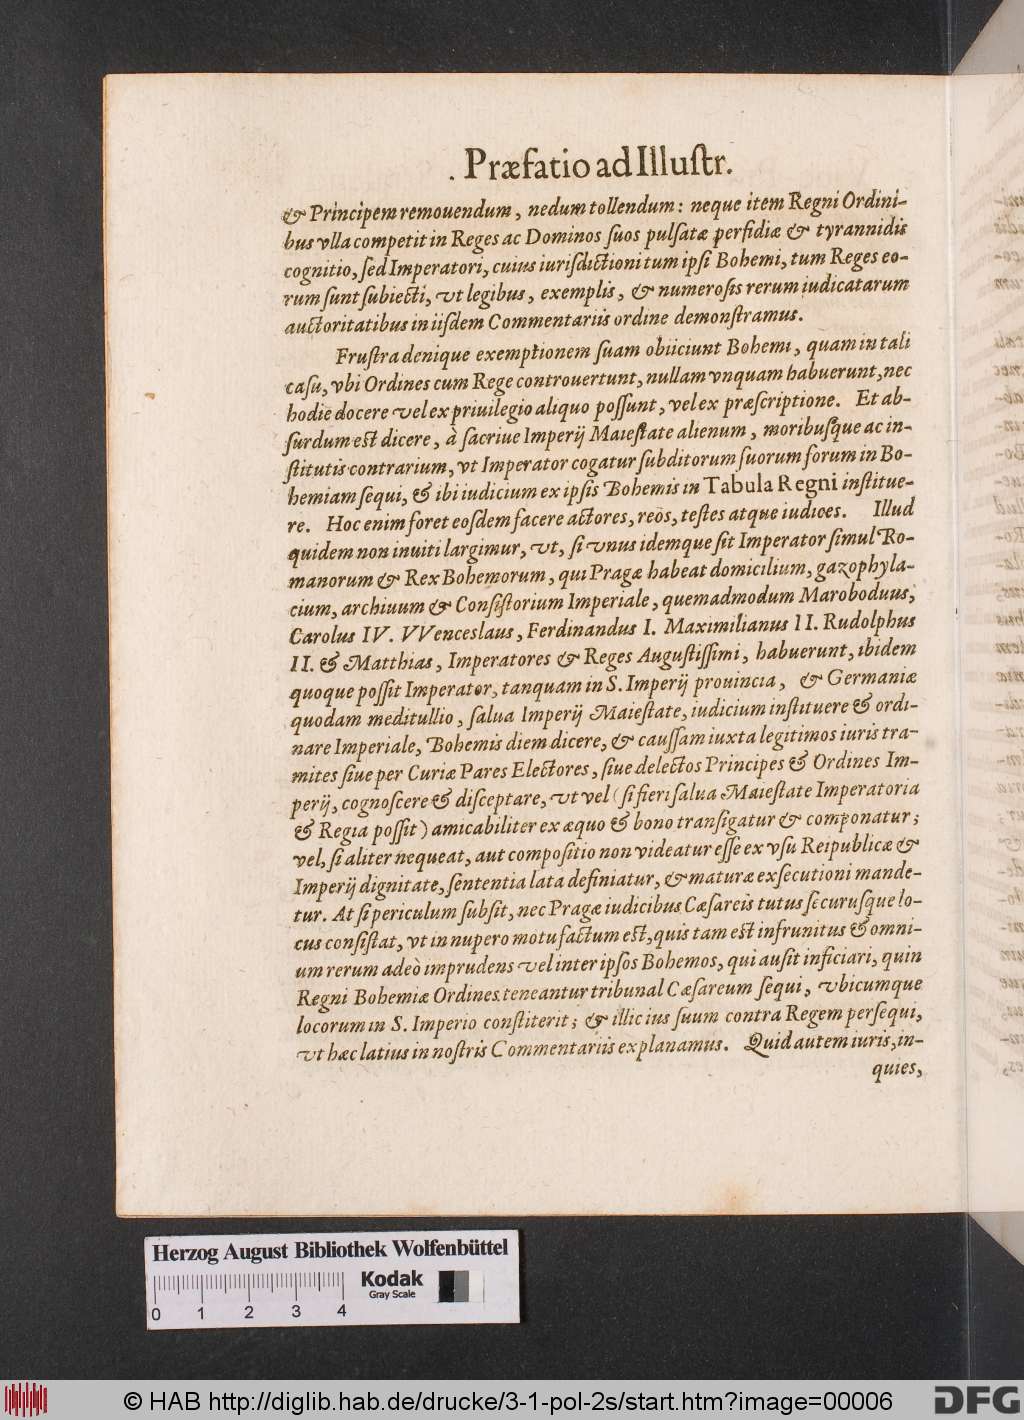 Præfatio ad Illuſtr.
& Principem remouendum, nedum tollendum: neque item Regni Ordini-
bus vlla competit in Reges ac Dominos ſuos pulſatæ perfidiæ & tyrannidis
cognitio, ſed Imperatori, cuius iurisdictioni tum ipſi Bohemi, tum Reges eo-
rum ſunt ſubiecti, vt legibus, exemplis, & numeroſis rerum iudicatarum
auctoritatibus in iiſdem Commentariis ordine demonſtramus.
Fruſtra denique exemptionem ſuam obiiciunt Bohemi, quam in tali
caſu, vbi Ordines cum Rege controuertunt, nullam vnquam habuerunt, nec
hodie docere vel ex priuilegio aliquo poſſunt, vel ex præſcriptione. Et ab-
ſurdum eſt dicere, à ſacriue Imperij Maieſtate alienum, moribuſque ac in-
ſtitutis contrarium, vt Imperator cogatur ſubditorum ſuorum forum in Bo-
hemiam ſequi, & ibi iudicium ex ipſis Bohemis in Tabula Regni inſtitue-
re. Hoc enim foret eoſdem facere actores, reos, teſtes atque iudices. Illud
quidem non inuiti largimur, vt, ſi vnus idemque ſit Imperator ſimul Ro-
manorum & Rex Bohemorum, qui Pragæ habeat domicilium, gazophyla-
cium, archiuum & Conſiſtorium Imperiale, quemadmodum Maroboduus,
Carolus IV. VVenceslaus, Ferdinandus I. Maximilianus II. Rudolphus
II. & Matthias, Imperatores & Reges Auguſtiſſimi, habuerunt, ibidem
quoque poſſit Imperator, tanquam in S. Imperij prouincia, & Germaniæ
quodam meditullio, ſalua Imperij Maieſtate, iudicium inſtituere & ordi-
nare Imperiale, Bohemis diem dicere, & cauſſam iuxta legitimos iuris tra-
mites ſiue per Curiæ Pares Electores, ſiue delectos Principes & Ordines Im-
perij, cognoſcere & diſceptare, vt vel (ſi fieri ſalua Maieſtate Imperatoria
& Regia poſſit) amicabiliter ex æquo & bono tranſigatur & componatur;
vel, ſi aliter nequeat, aut compoſitio non videatur eſſe ex vſu Reipublicæ &
Imperij dignitate, ſententia lata definiatur, & maturæ exſecutioni mande-
tur. At ſi periculum ſubſit, nec Pragæ iudicibus Cæſareis tutus ſecuruſque lo-
cus conſiſtat, vt in nupero motu factum eſt, quis tam eſt infrunitus & omni-
um rerum adeò imprudens vel inter ipſos Bohemos, qui auſit inficiari, quin
Regni Bohemiæ Ordines teneantur tribunal Cæſareum ſequi, vbicumque
locorum in S. Imperio conſtiterit; & illic ius ſuum contra Regem perſequi,
vt hæc latius in noſtris Commentariis explanamus. Quid autem iuris, in-
quies,
Herzog August Bibliothek Wolfenbüttel
Kodak
Gray Scale
0 1 2 3 4
© HAB http://diglib.hab.de/drucke/3-1-pol-2s/start.htm?image=00006
DFG